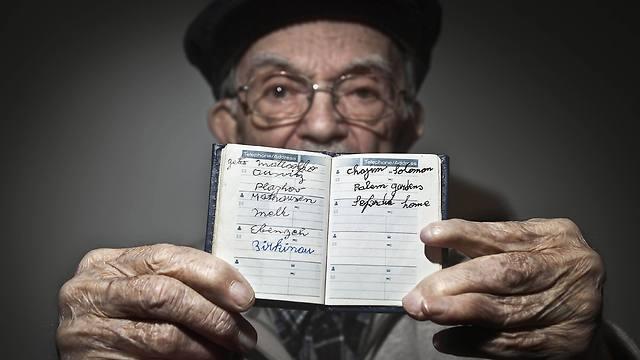 Telephone/Address
geto
Ausvitz
Plashov
Mathausen
Melk
Ebenzeh
Birkinau
Telephone/Address
Chajim Solomon
Palem gardens
Sefardic home